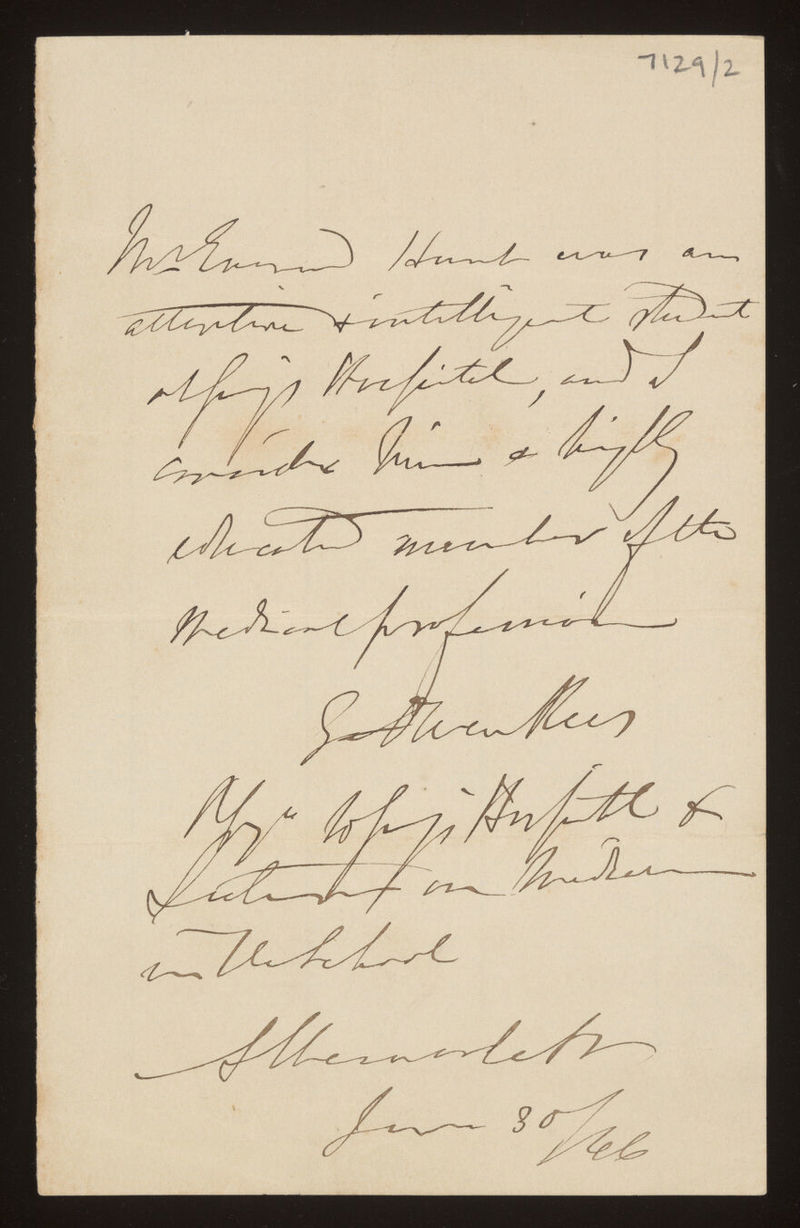 7129/2
Mr Everard Hunt was an
attentive & intelligent student
at Guy's Hospital, and I
consider him a highly
educated member of the
Medical profession
G. Owen Rees
Physn to Guy's Hospital &
Lecturer on Medicine
in the School
Albemarle St
June 30/66